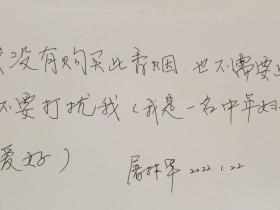 没有购买此香烟.也不需要
不要打扰我(我是一名中年妇
爱好) 2022.1.22